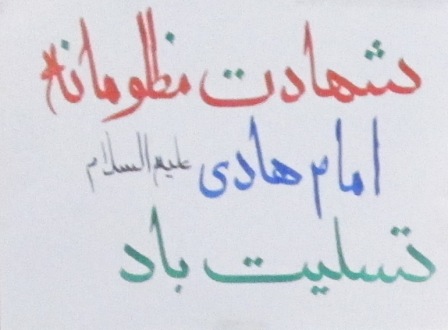 شهادت مظلومانه
امام هادی علیه السلام
تسلیت باد